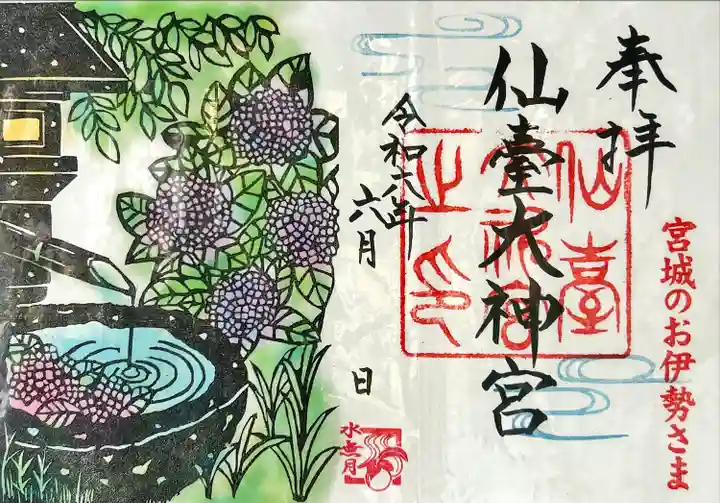 奉拝
宮城のお伊勢さま
仙臺大神宮
仙臺
大神宮
之印
令和六年
六月
日
水無月